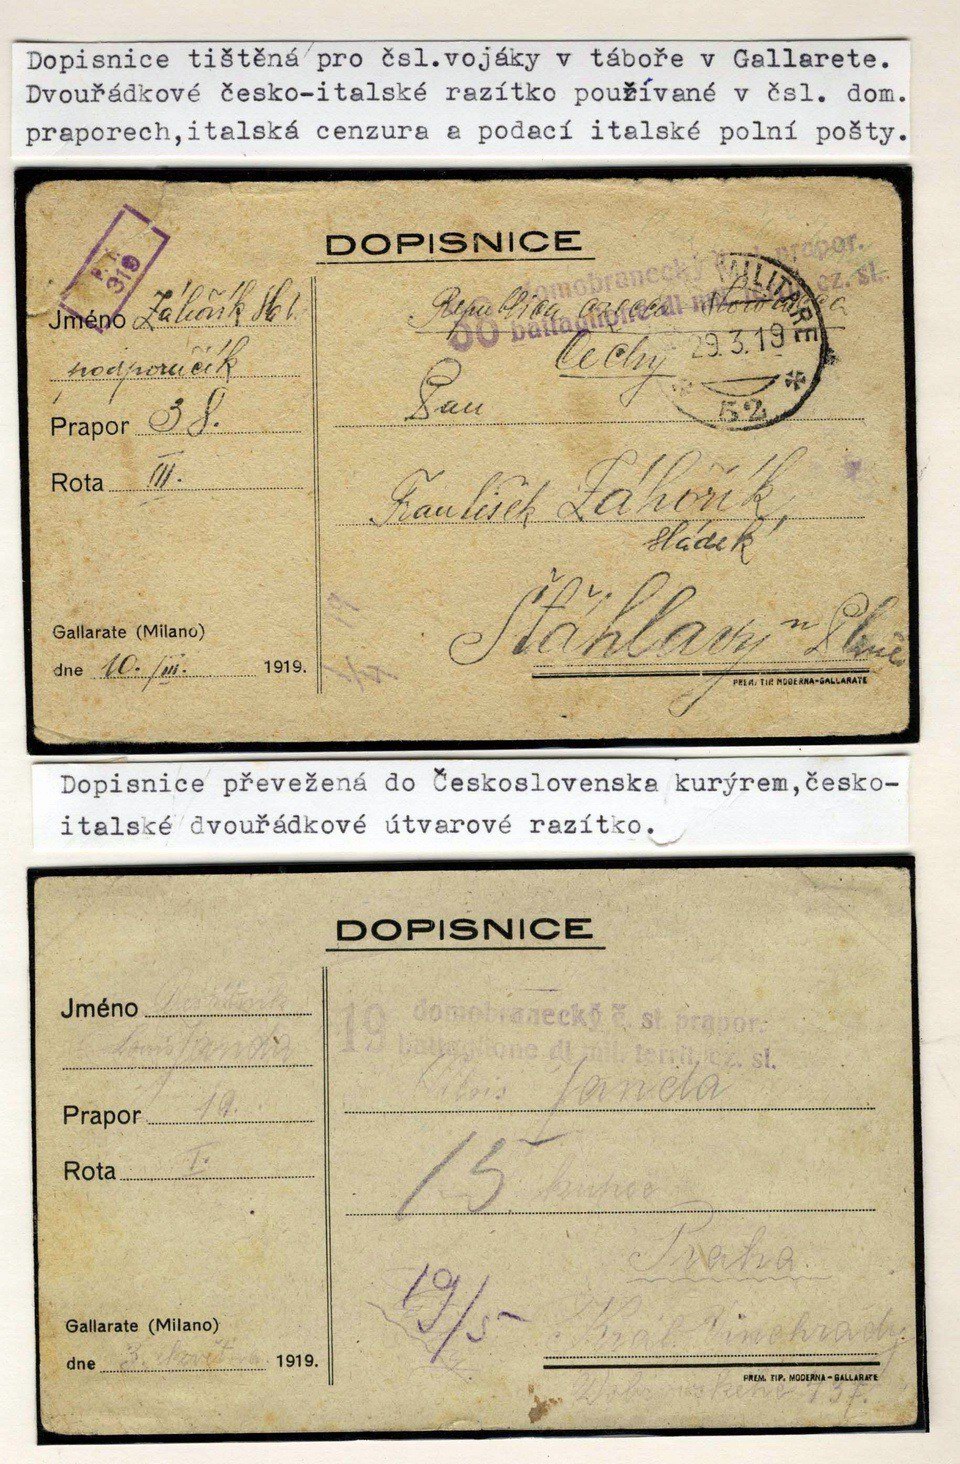 Dopisnice tištěná pro čsl.vojáky v táboře v Gallarete.
Dvouřádkové česko-italské razítko používané v čsl. dom.
praporech,italská cenzura a podací italské polní pošty.
DOPISNICE
319
domobranecký prapor.
battaglione di cz. sl.
MILITARE
29.3.19
52
Jméno Záhořík
podporučík
Prapor 38.
Rota III.
Gallarate (Milano)
dne 10./III. 1919.
Republica
Čechy
Pan
František Záhořík
Šťáhlavy n
PREM. TIP. MODERNA-GALLARATE
Dopisnice převežená do Československa kurýrem,česko-
italské dvouřádkové útvarové razítko.
DOPISNICE
19 domobranecký č. sl. prapor.
battaglione di mil. territ. cz. sl.
Jméno
Janda
Prapor 19.
Rota I.
Gallarate (Milano)
dne 3. května 1919.
Janda
15
kupec
Praha.
19/5
Král. Vinohrady
137.
PREM. TIP. MODERNA-GALLARATE